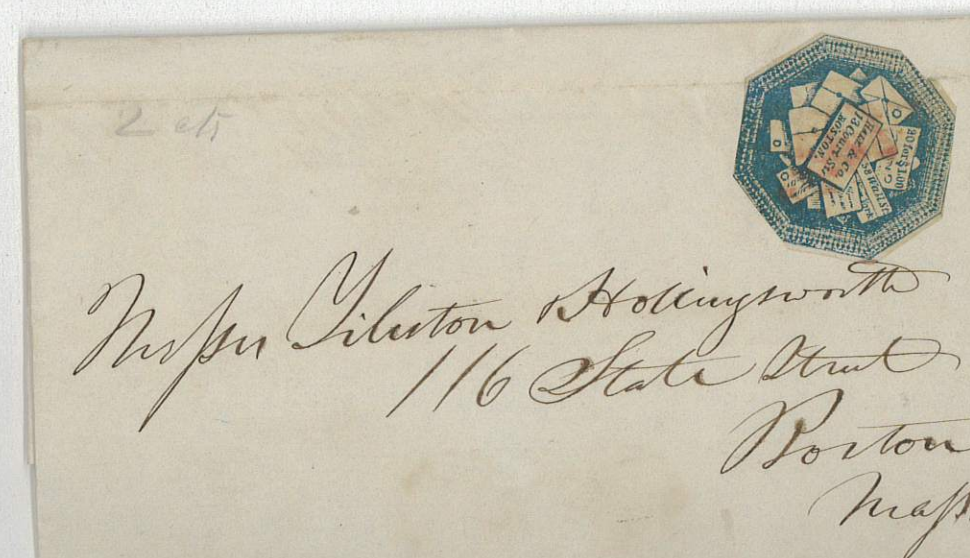 2 cts
HALE & Co.
13 COURT St.
BOSTON.
20 for $1.00
58 Wall St.
Messrs Tileston & Hollingsworth
116 State Street
Boston
Mass